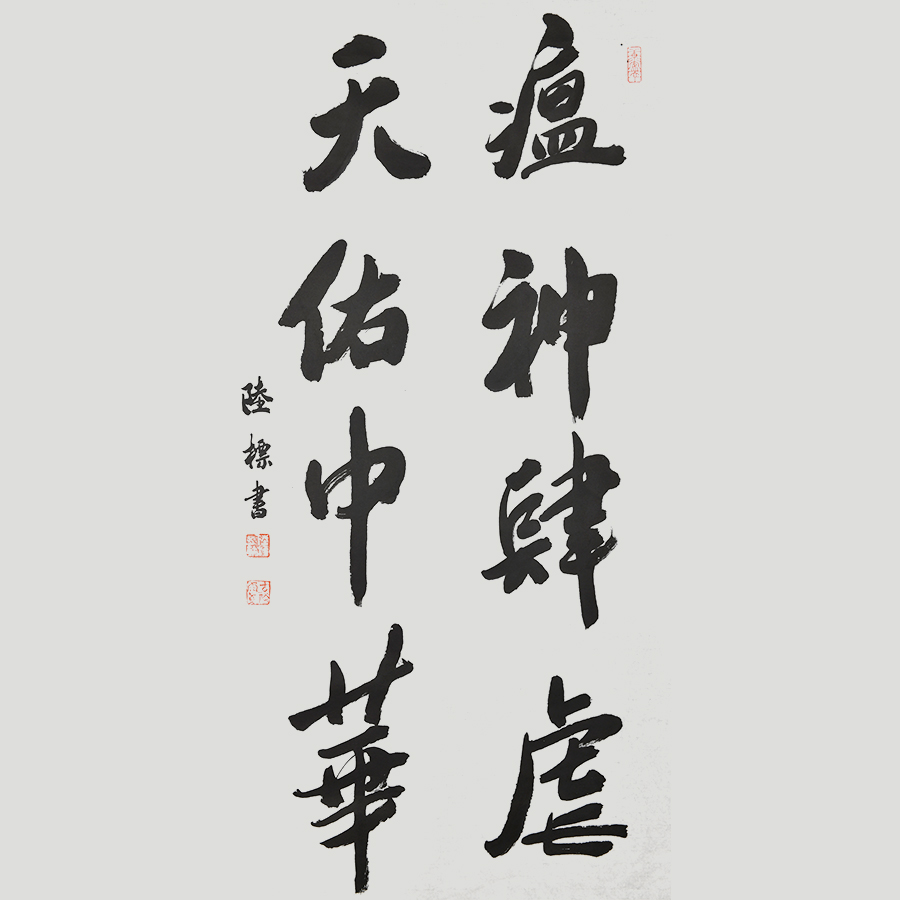 瘟神肆虐
天佑中華
陸標書